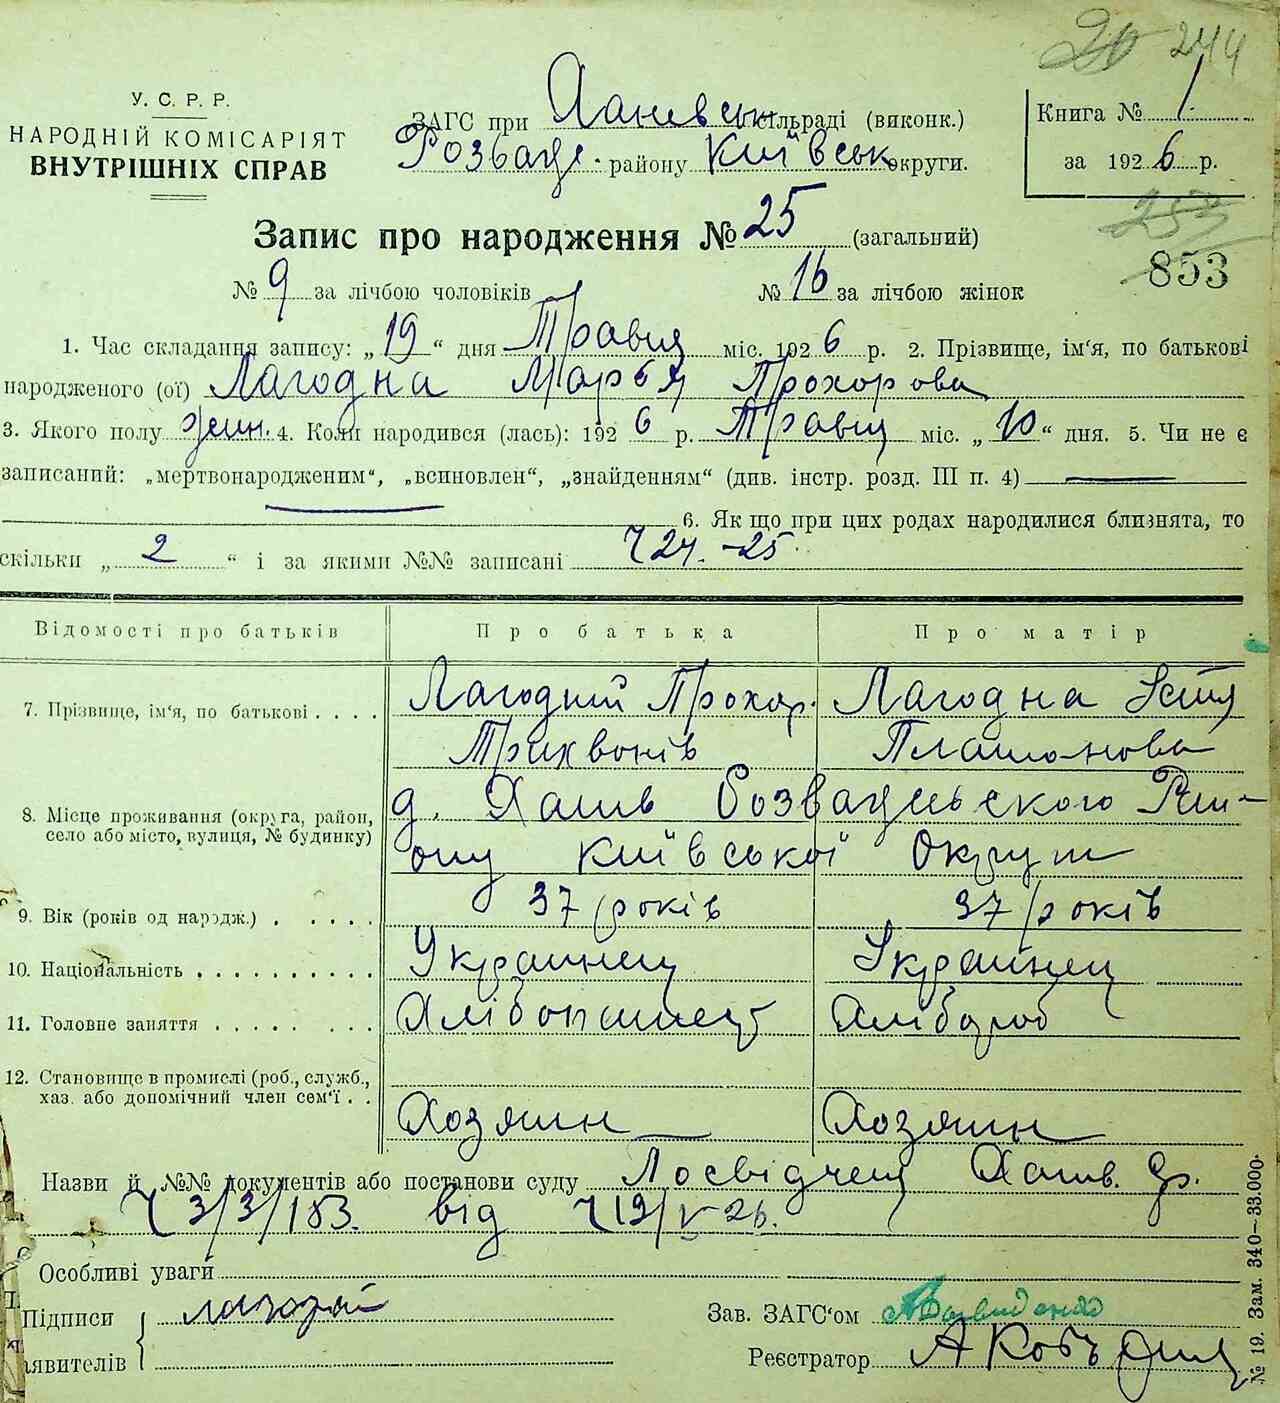 244
У. С. Р. Р.
НАРОДНІЙ КОМІСАРІЯТ
ВНУТРІШНІХ СПРАВ
ЗАГС при Ханевськ сільраді (виконк.)
Розваже. району Київськ округи.
Книга № 1
за 1926 р.
253
853
Запис про народження № 25 (загальний)
№ 9 за лічбою чоловіків № 16 за лічбою жінок
1. Час складання запису: „19“ дня Травня міс. 1926 р. 2. Прізвище, ім‘я, по батькові
народженого (ої) Лагодна Марья Прохорова
3. Якого полу жин. 4. Коли народився (лась): 1926 р. Травня міс. „10“ дня. 5. Чи не є
записаний: „мертвонародженим“, „всиновлен“, „знайденням“ (див. інстр. розд. III п. 4)
6. Як що при цих родах народилися близнята, то
скільки „2“ і за якими №№ записані Ч 24.-25.
Відомості про батьків Про батька Про матір
7. Прізвище, ім‘я, по батькові . . . . Лагодний Прохор. Лагодна Устя
Трихвонів Платонова
8. Місце проживання (округа, район, село або місто, вулиця, № будинку) д. Ханів Розважевського Рай-
ону Київської Округи
9. Вік (років од народж.) . . . . . . 37 років 37 років
10. Національність . . . . . . . . . . Украинец Украинец
11. Головне заняття . . . . . . . . . Хлібопашец Хлібороб
12. Становище в промислі (роб., служб.,
хаз. або допомічний член сем‘ї . . Хозяин Хозяин
Назви й №№ документів або постанови суду Посвідченя Ханів.
Ч 3/3/183. від Ч 19/V-26.
Особливі уваги
Підписи Лагодній Зав. ЗАГС‘ом
аявителів Реєстратор А
№ 19. Зам. 340—33.000.